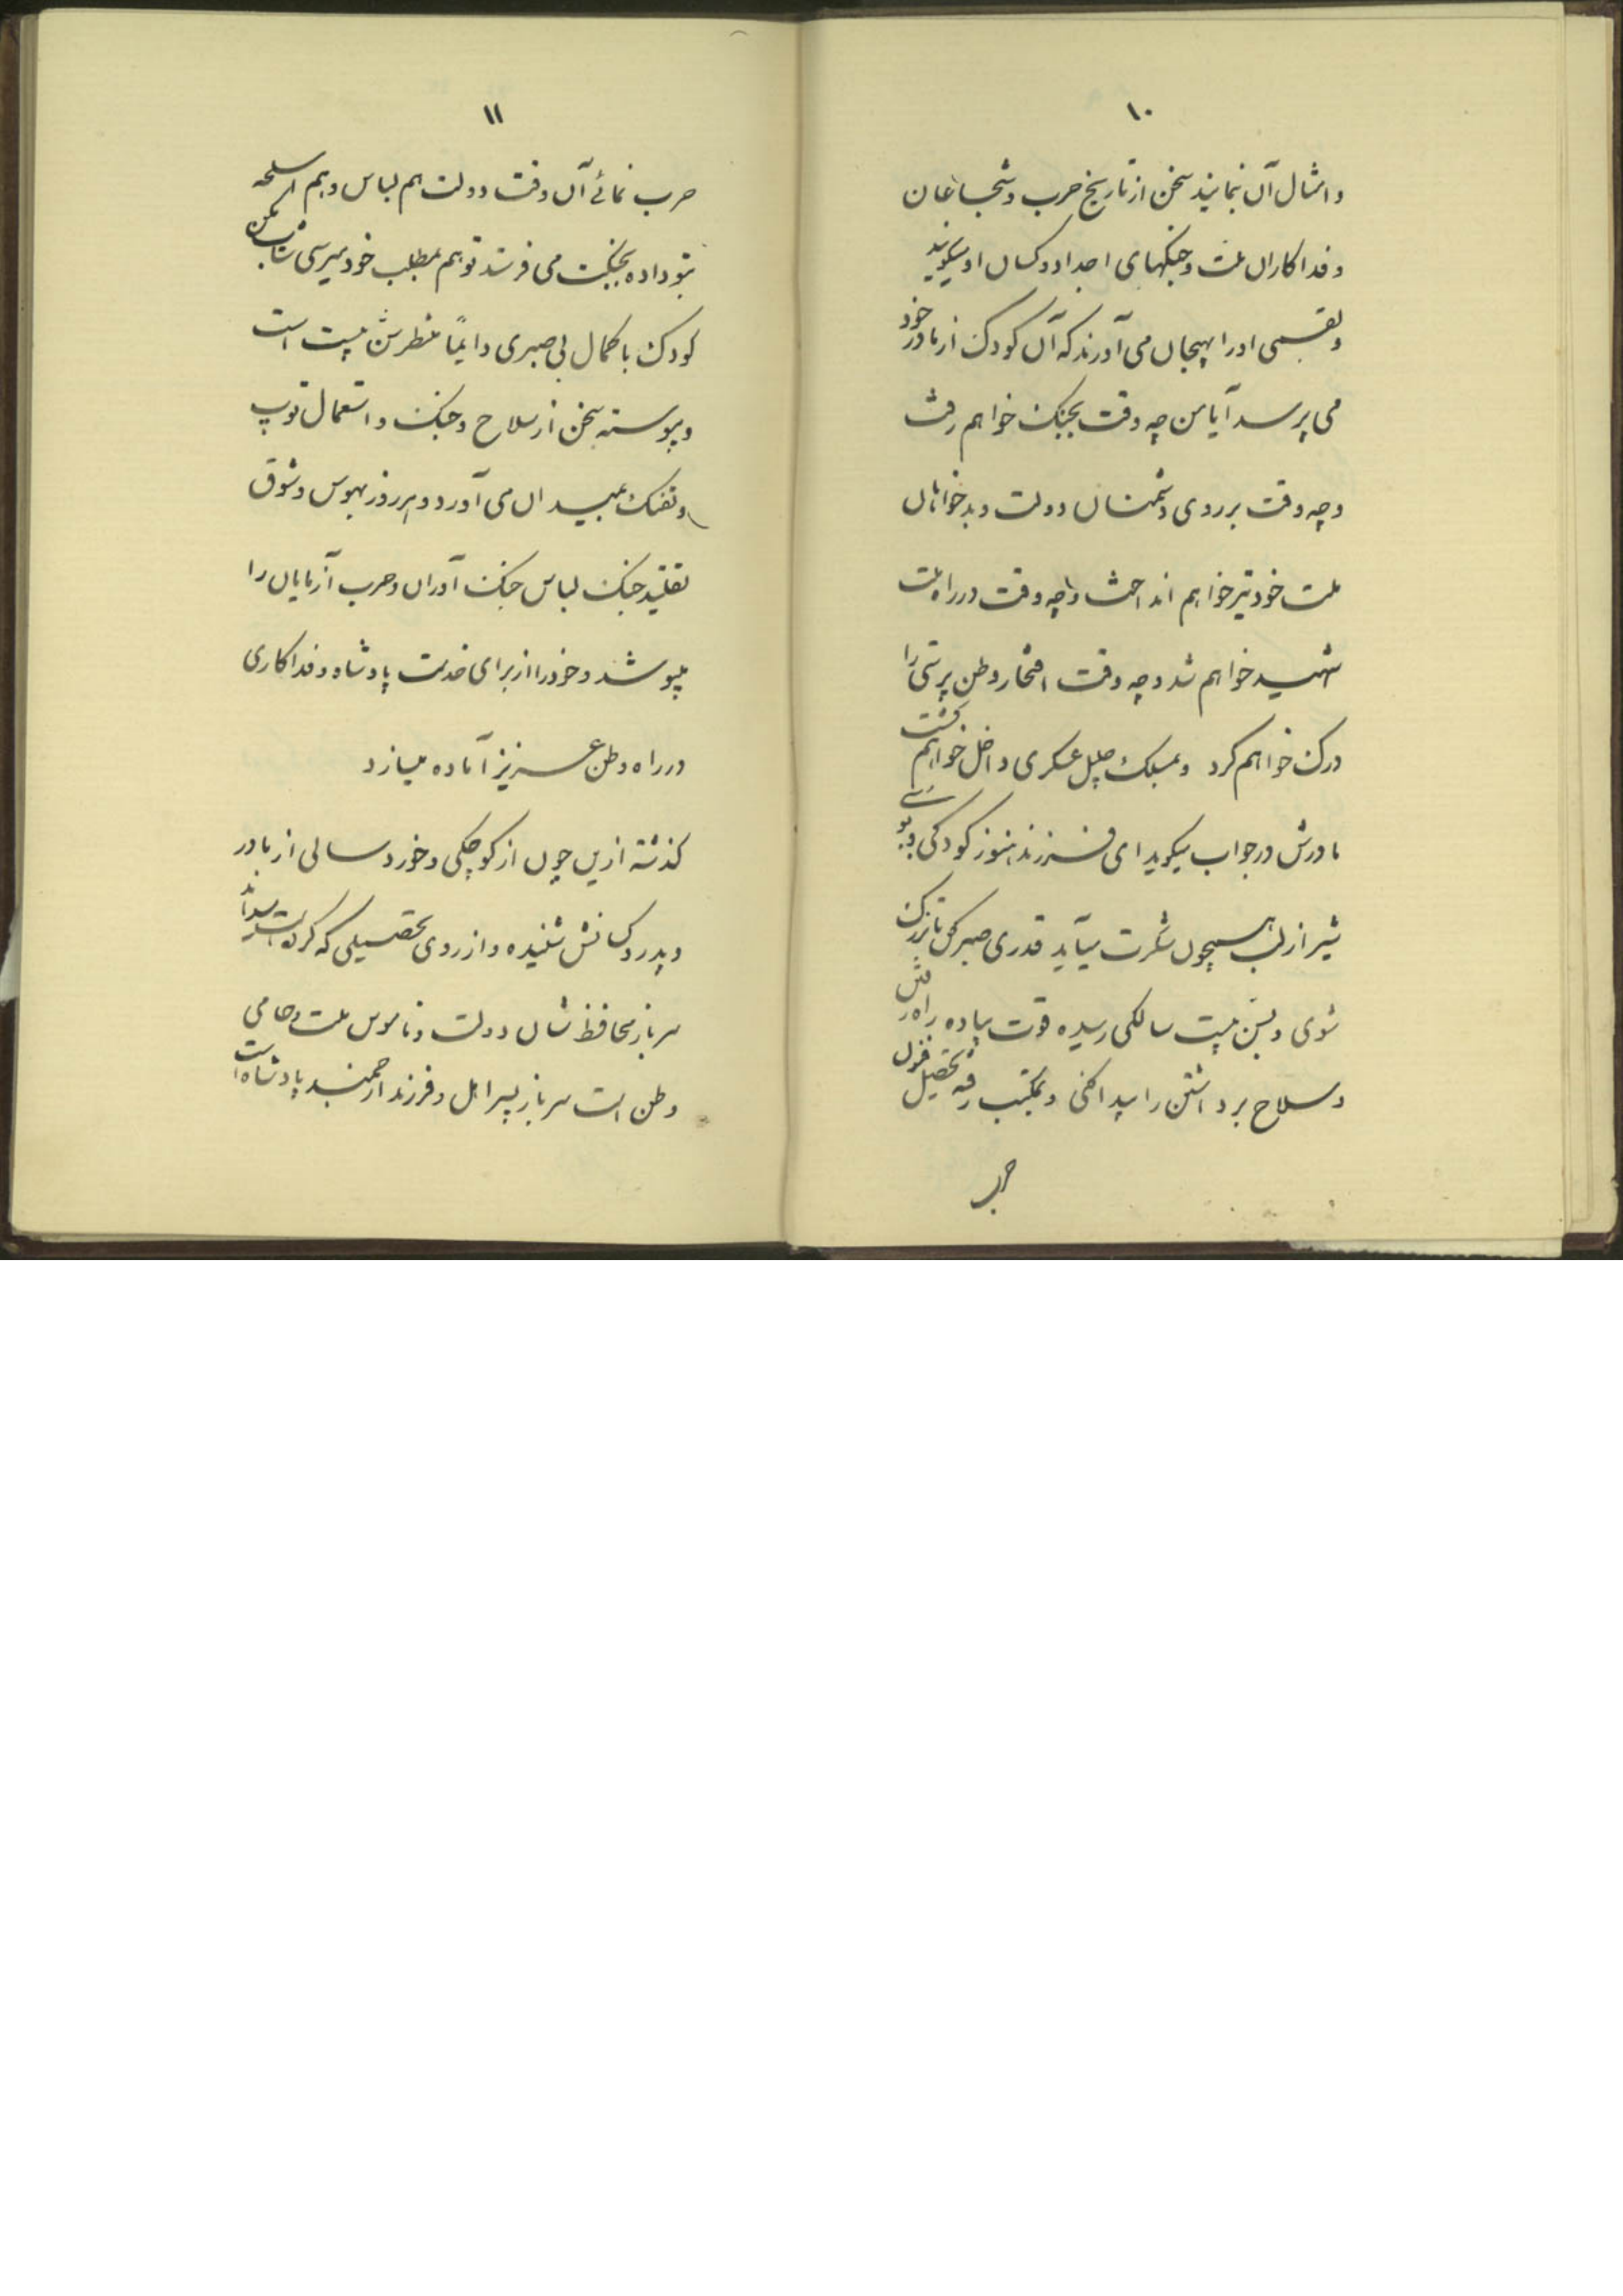 ۱۰
و امثال آن نمایند سخن از تاریخ حرب و شجاعان
و فداکاران ملت و جنگهای اجداد و کسان او میگویند
و بقسمی او را بهیجان می آورند که آن کودک از مادر خود
می پرسد آیا من چه وقت بجنگ خواهم رفت
و چه وقت بر روی دشمنان دولت و بدخواهان
ملت خود تیر خواهم انداخت و چه وقت در راه ملت
شهید خواهم شد و چه وقت افتخار وطن پرستی را
درک خواهم کرد و بمسلک جلیل عسکری داخل خواهم گشت
مادرش در جواب میگوید ای فرزند هنوز کودکی و بوی
شیر از لب همچون شکرت میآید قدری صبر کن تا بزرک
شوی و بسن بیست سالگی رسیده قوت پیاده راه رفتن
و سلاح برداشتن را پیدا کنی و بمکتب رفته تحصیل فنون
حرب
۱۱
حرب نمائی آن وقت دولت هم لباس و هم اسلحه
بتو داده بجنگت می فرستد تو هم بمطلب خود میرسی شتاب مکن
کودک با کمال بی صبری دایماً منتظر سن بیست است
و پیوسته سخن از سلاح و جنگ و استعمال توپ
و تفنک بمیدان می آورد و هر روز بهوس و شوق
تقلید جنگ لباس جنگ آوران و حرب آزمایان را
میپوشد و خود را از برای خدمت پادشاه و فداکاری
در راه وطن عزیز آماده میسازد
گذشته ازین چون از کوچکی و خورد سالی از مادر
و پدر و کسانش شنیده و از روی تحصیلی که کرده است میداند
سرباز محافظ شان دولت و ناموس ملت و حامی
وطن است سرباز پسر اهل و فرزند ارجمند پادشاه است